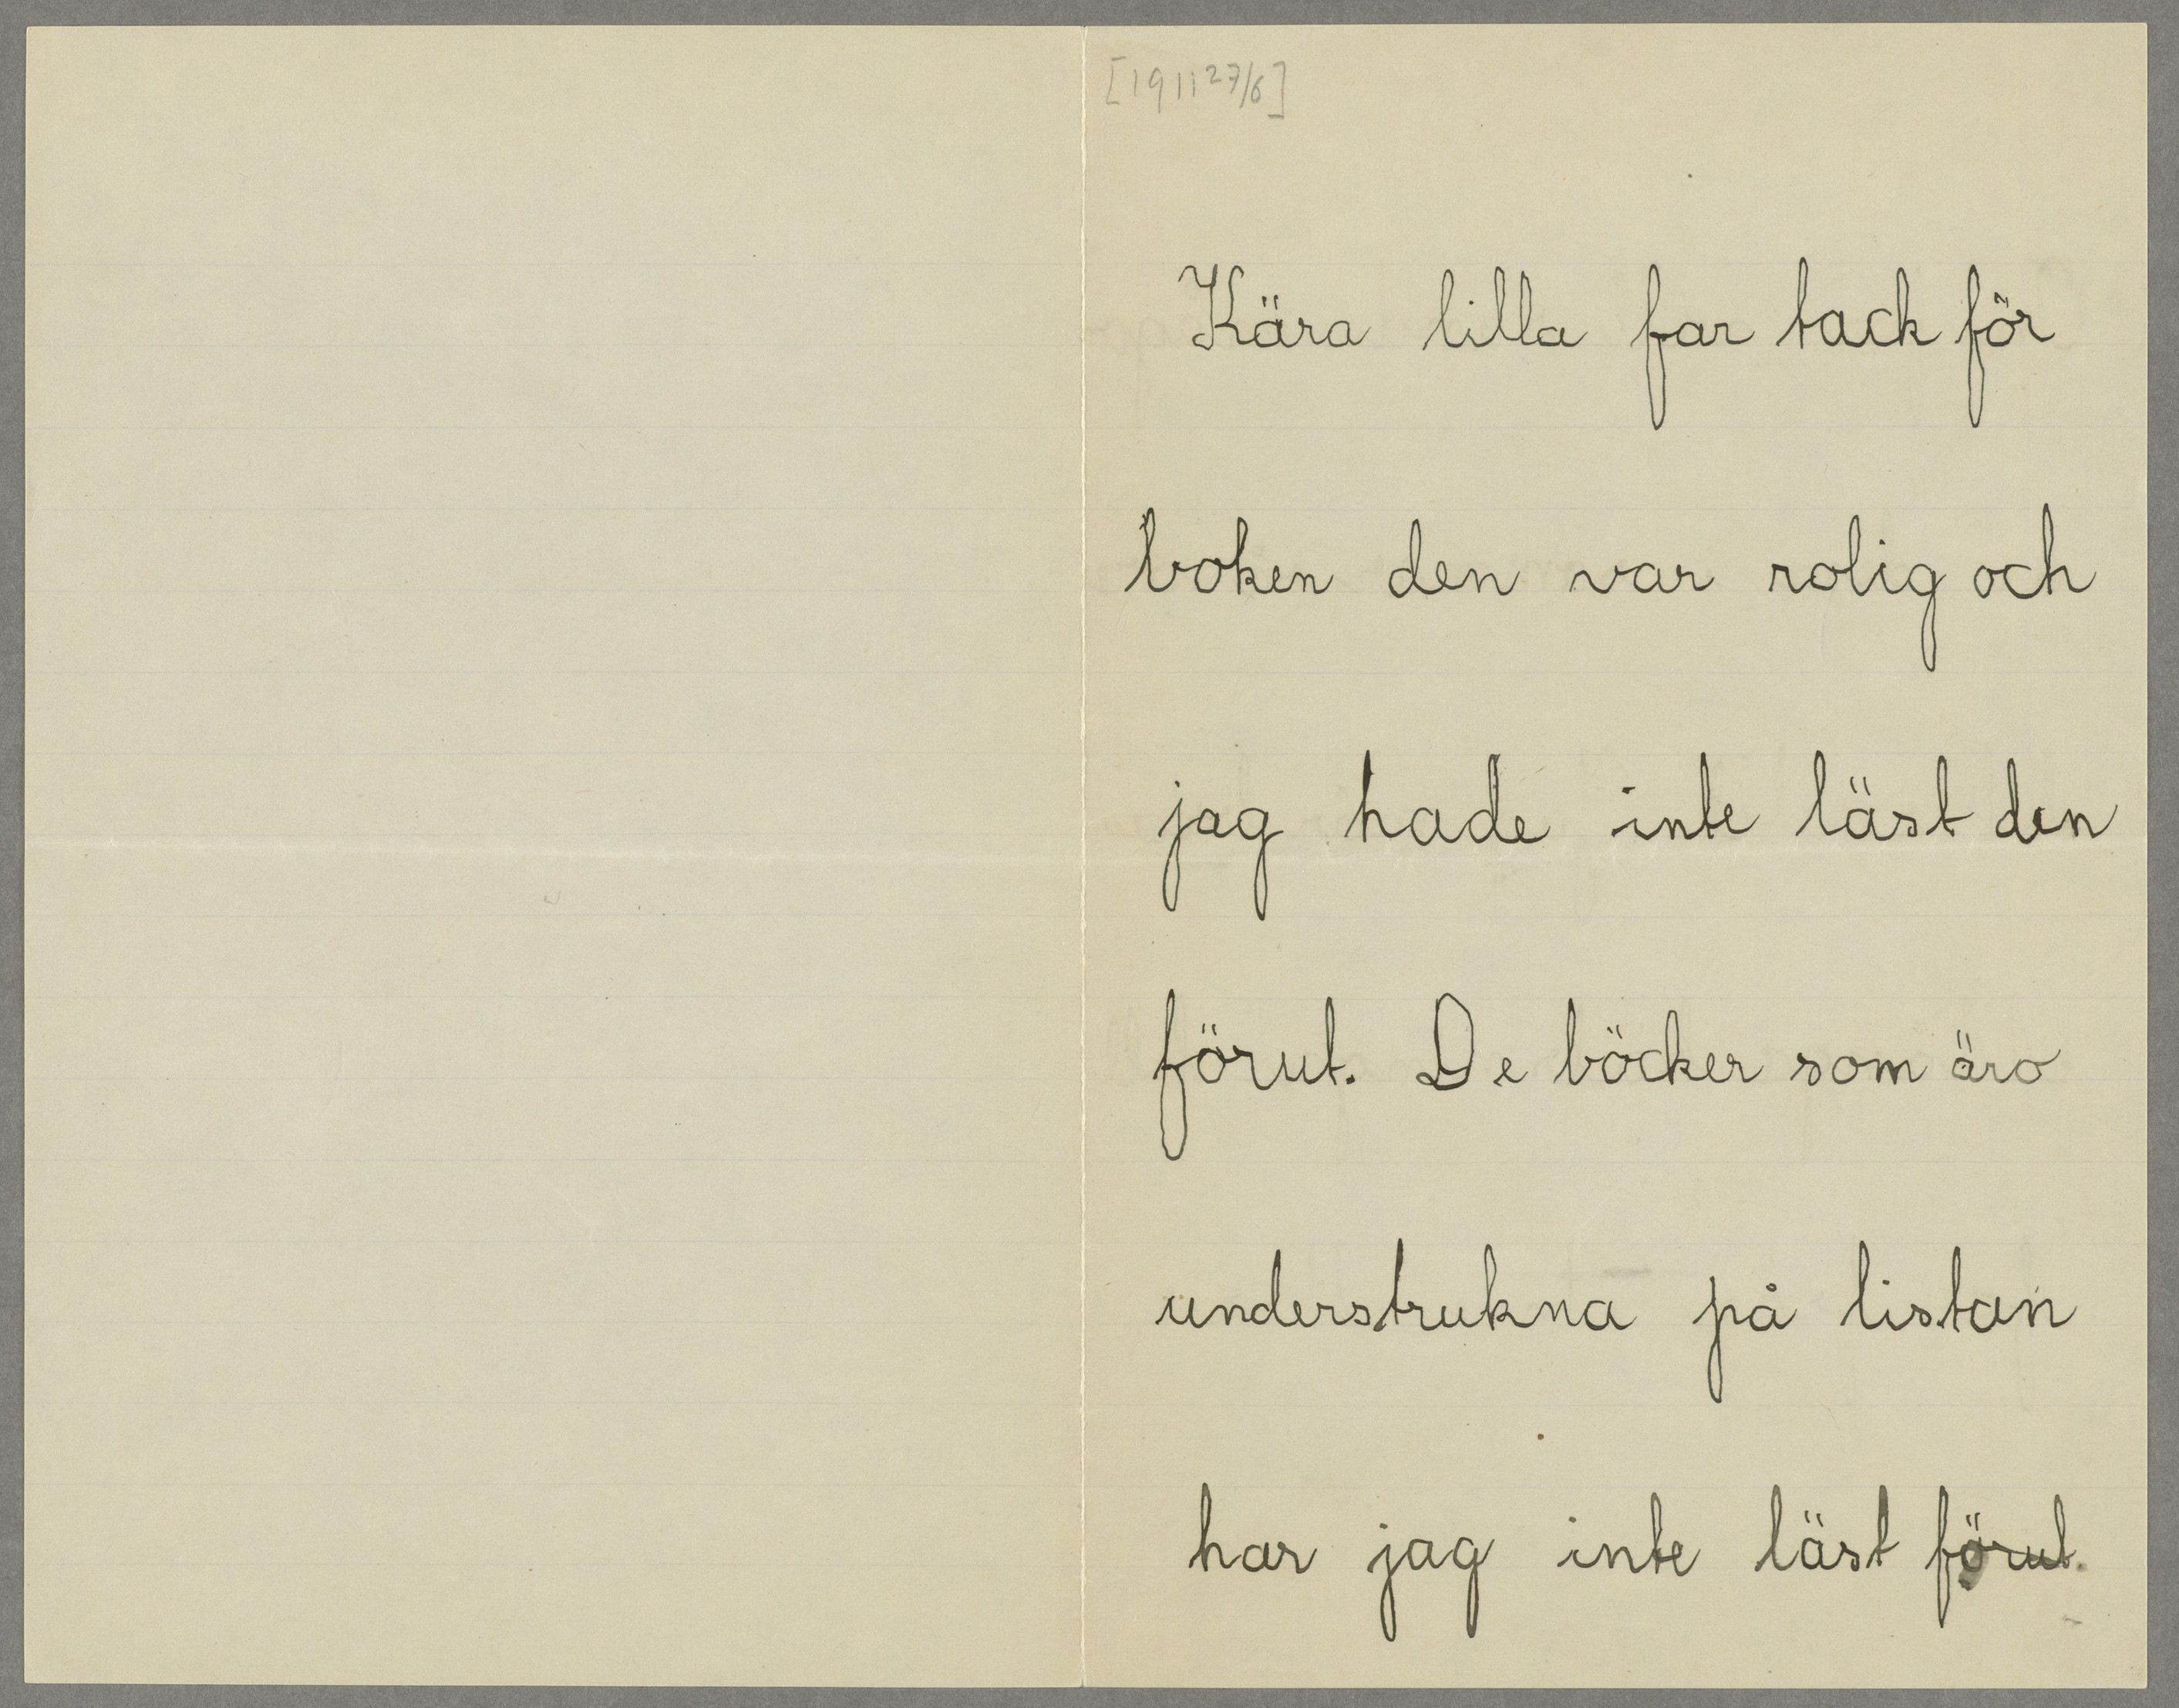 [1911 27/6]
Kära lilla far tack för
boken den var rolig och
jag hade inte läst den
förut. De böcker som äro
understrukna på listan
har jag inte läst förut.